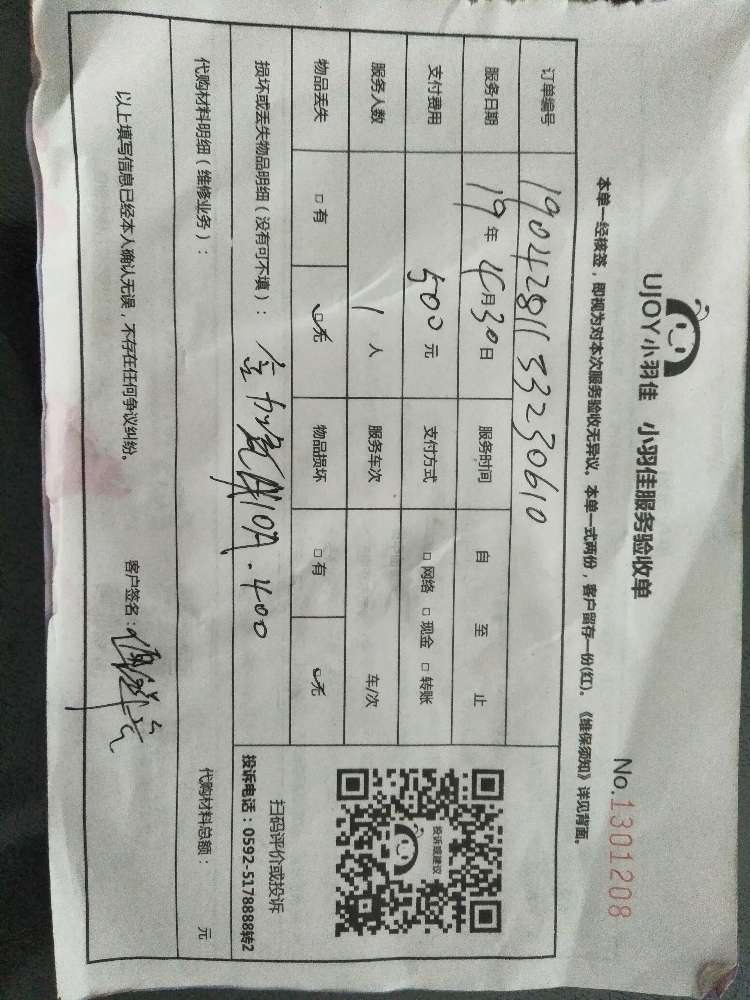 UJOY小羽佳 小羽佳服务验收单
No.1301208
本单一经核签，即视为对本次服务验收无异议。本单一式两份，客户留存一份(红)。《维保须知》详见背面。
订单编号 1904281133230610
服务日期 19年 4月30日 服务时间 自 至 止
支付费用 500元 支付方式 □网络 □现金 □转账
服务人数 1人 服务车次 车/次
物品丢失 □有 □无 物品损坏 □有 □无
损坏或丢失物品明细（没有可不填）： 410A.400
代购材料明细（维修业务）：
代购材料总额： 元
投诉或建议
扫码评价或投诉
投诉电话：0592-5178888转2
以上填写信息已经本人确认无误，不存在任何争议纠纷。
客户签名：